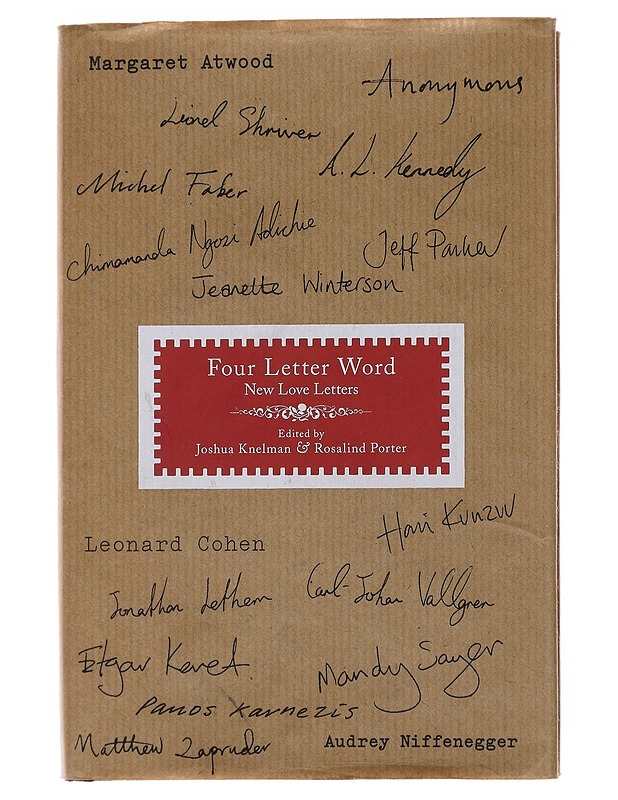 Margaret Atwood
Anonymous
Lionel Shriver
A. L. Kennedy
Michel Faber
Chimamanda Ngozi Adichie
Jeff Parker
Jeanette Winterson
Four Letter Word
New Love Letters
Edited by
Joshua Knelman & Rosalind Porter
Hari Kunzru
Leonard Cohen
Jonathan Lethem
Carl-Johan Vallgren
Etgar Keret
Mandy Sayer
Panos Karnezis
Matthew Zapruder
Audrey Niffenegger